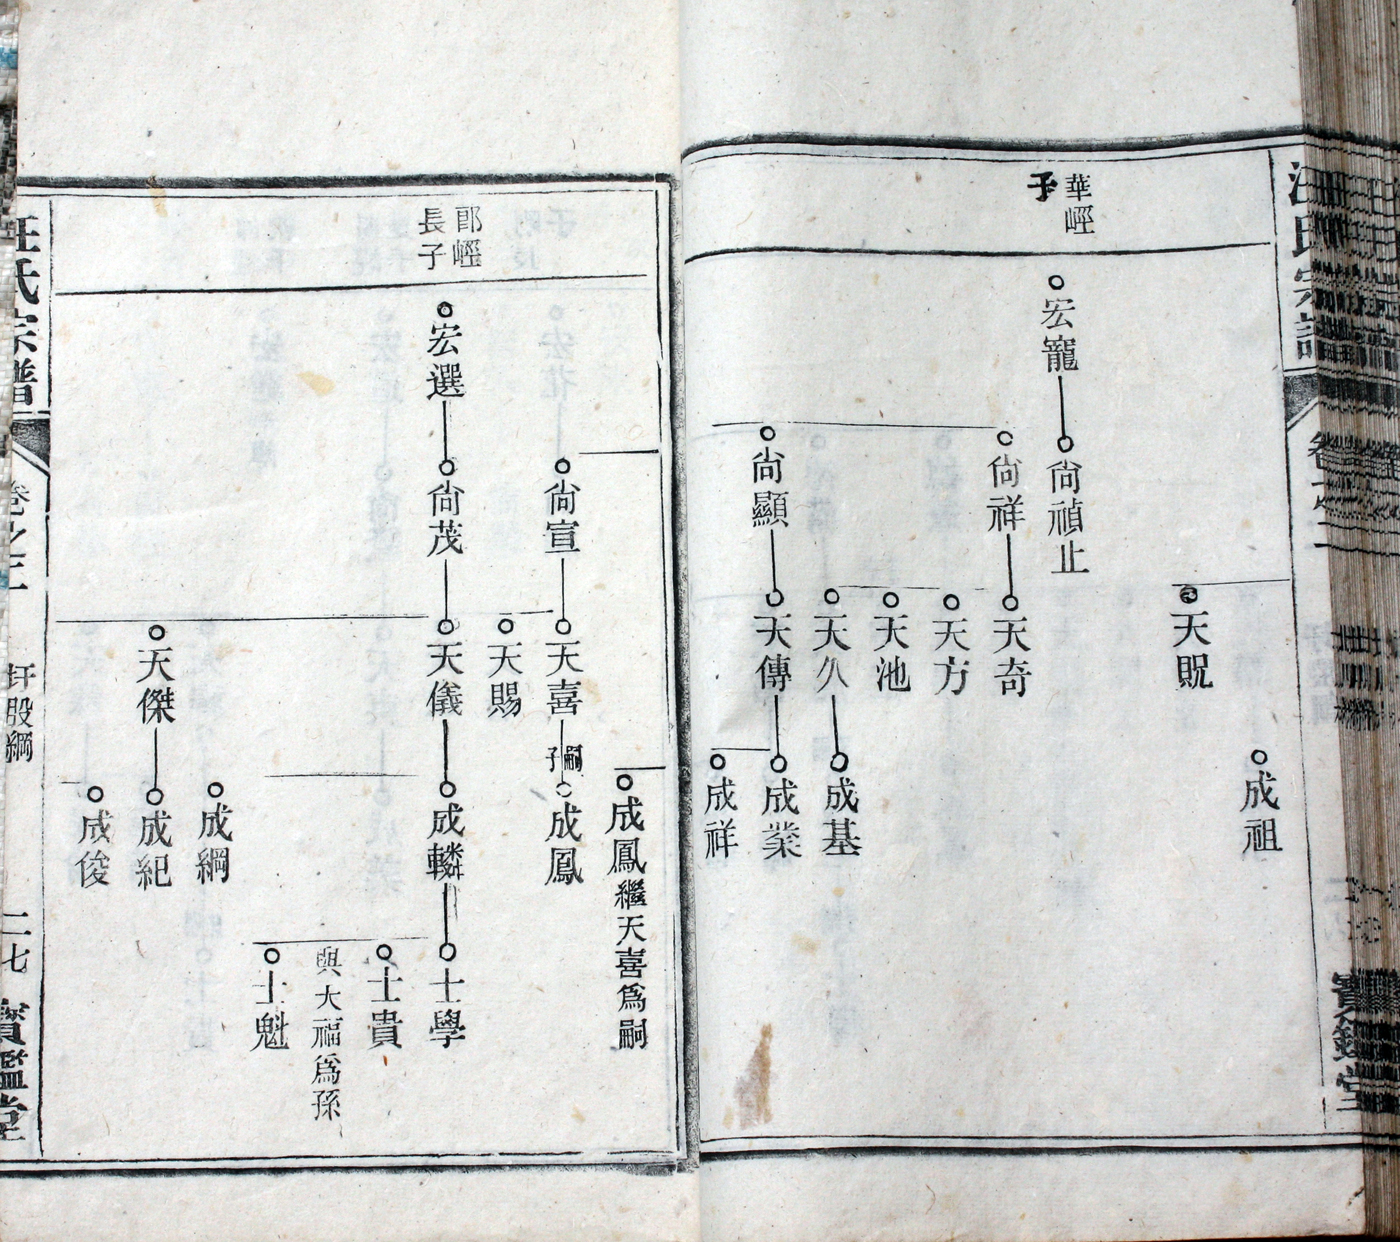 汪氏宗譜
卷之二
寶鑑堂
成祖
天貺
華峌
子
宏寵
尙禎止
尙祥
天奇
天方
天池
天久
成基
尙顯
天傳
成業
成祥
成鳳繼天喜爲嗣
尙宣
天喜
嗣子
成鳳
天賜
長子
宏選
尙茂
天儀
成轔
士學
士貴
與大福爲孫
士魁
成綱
天傑
成紀
成俊
汪氏宗譜
卷之二
扞股綱
二七
寶鑑堂